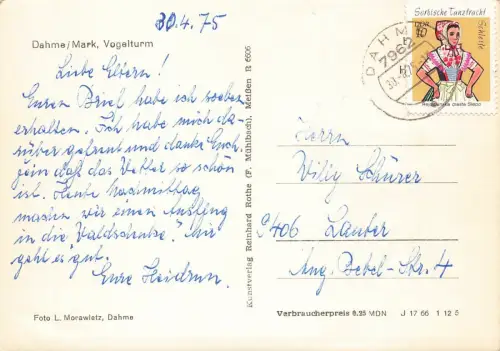 30.4.75
Dahme/Mark, Vogelturm
Liebe Eltern!
Euren Brief habe ich soeben
erhalten. Ich habe mich da-
rüber gefreut und danke Euch.
fein daß das Wetter so schön
ist. Heute nachmittag
machen wir einen Ausflug
in die Waldschenke." Mir
geht es gut.
Eure Heidrun.
Foto L. Morawietz, Dahme
Kunstverlag Reinhard Rothe (F. Mühlbach), Meißen R 6606
Sorbische Tanztracht
Schleife
DDR
10
DAHME
7962
Herrn
Willy Schürer
9406 Lauter
Aug. Bebel-Str. 4
Verbraucherpreis 0.25 MDN J 17 66 1 12 5